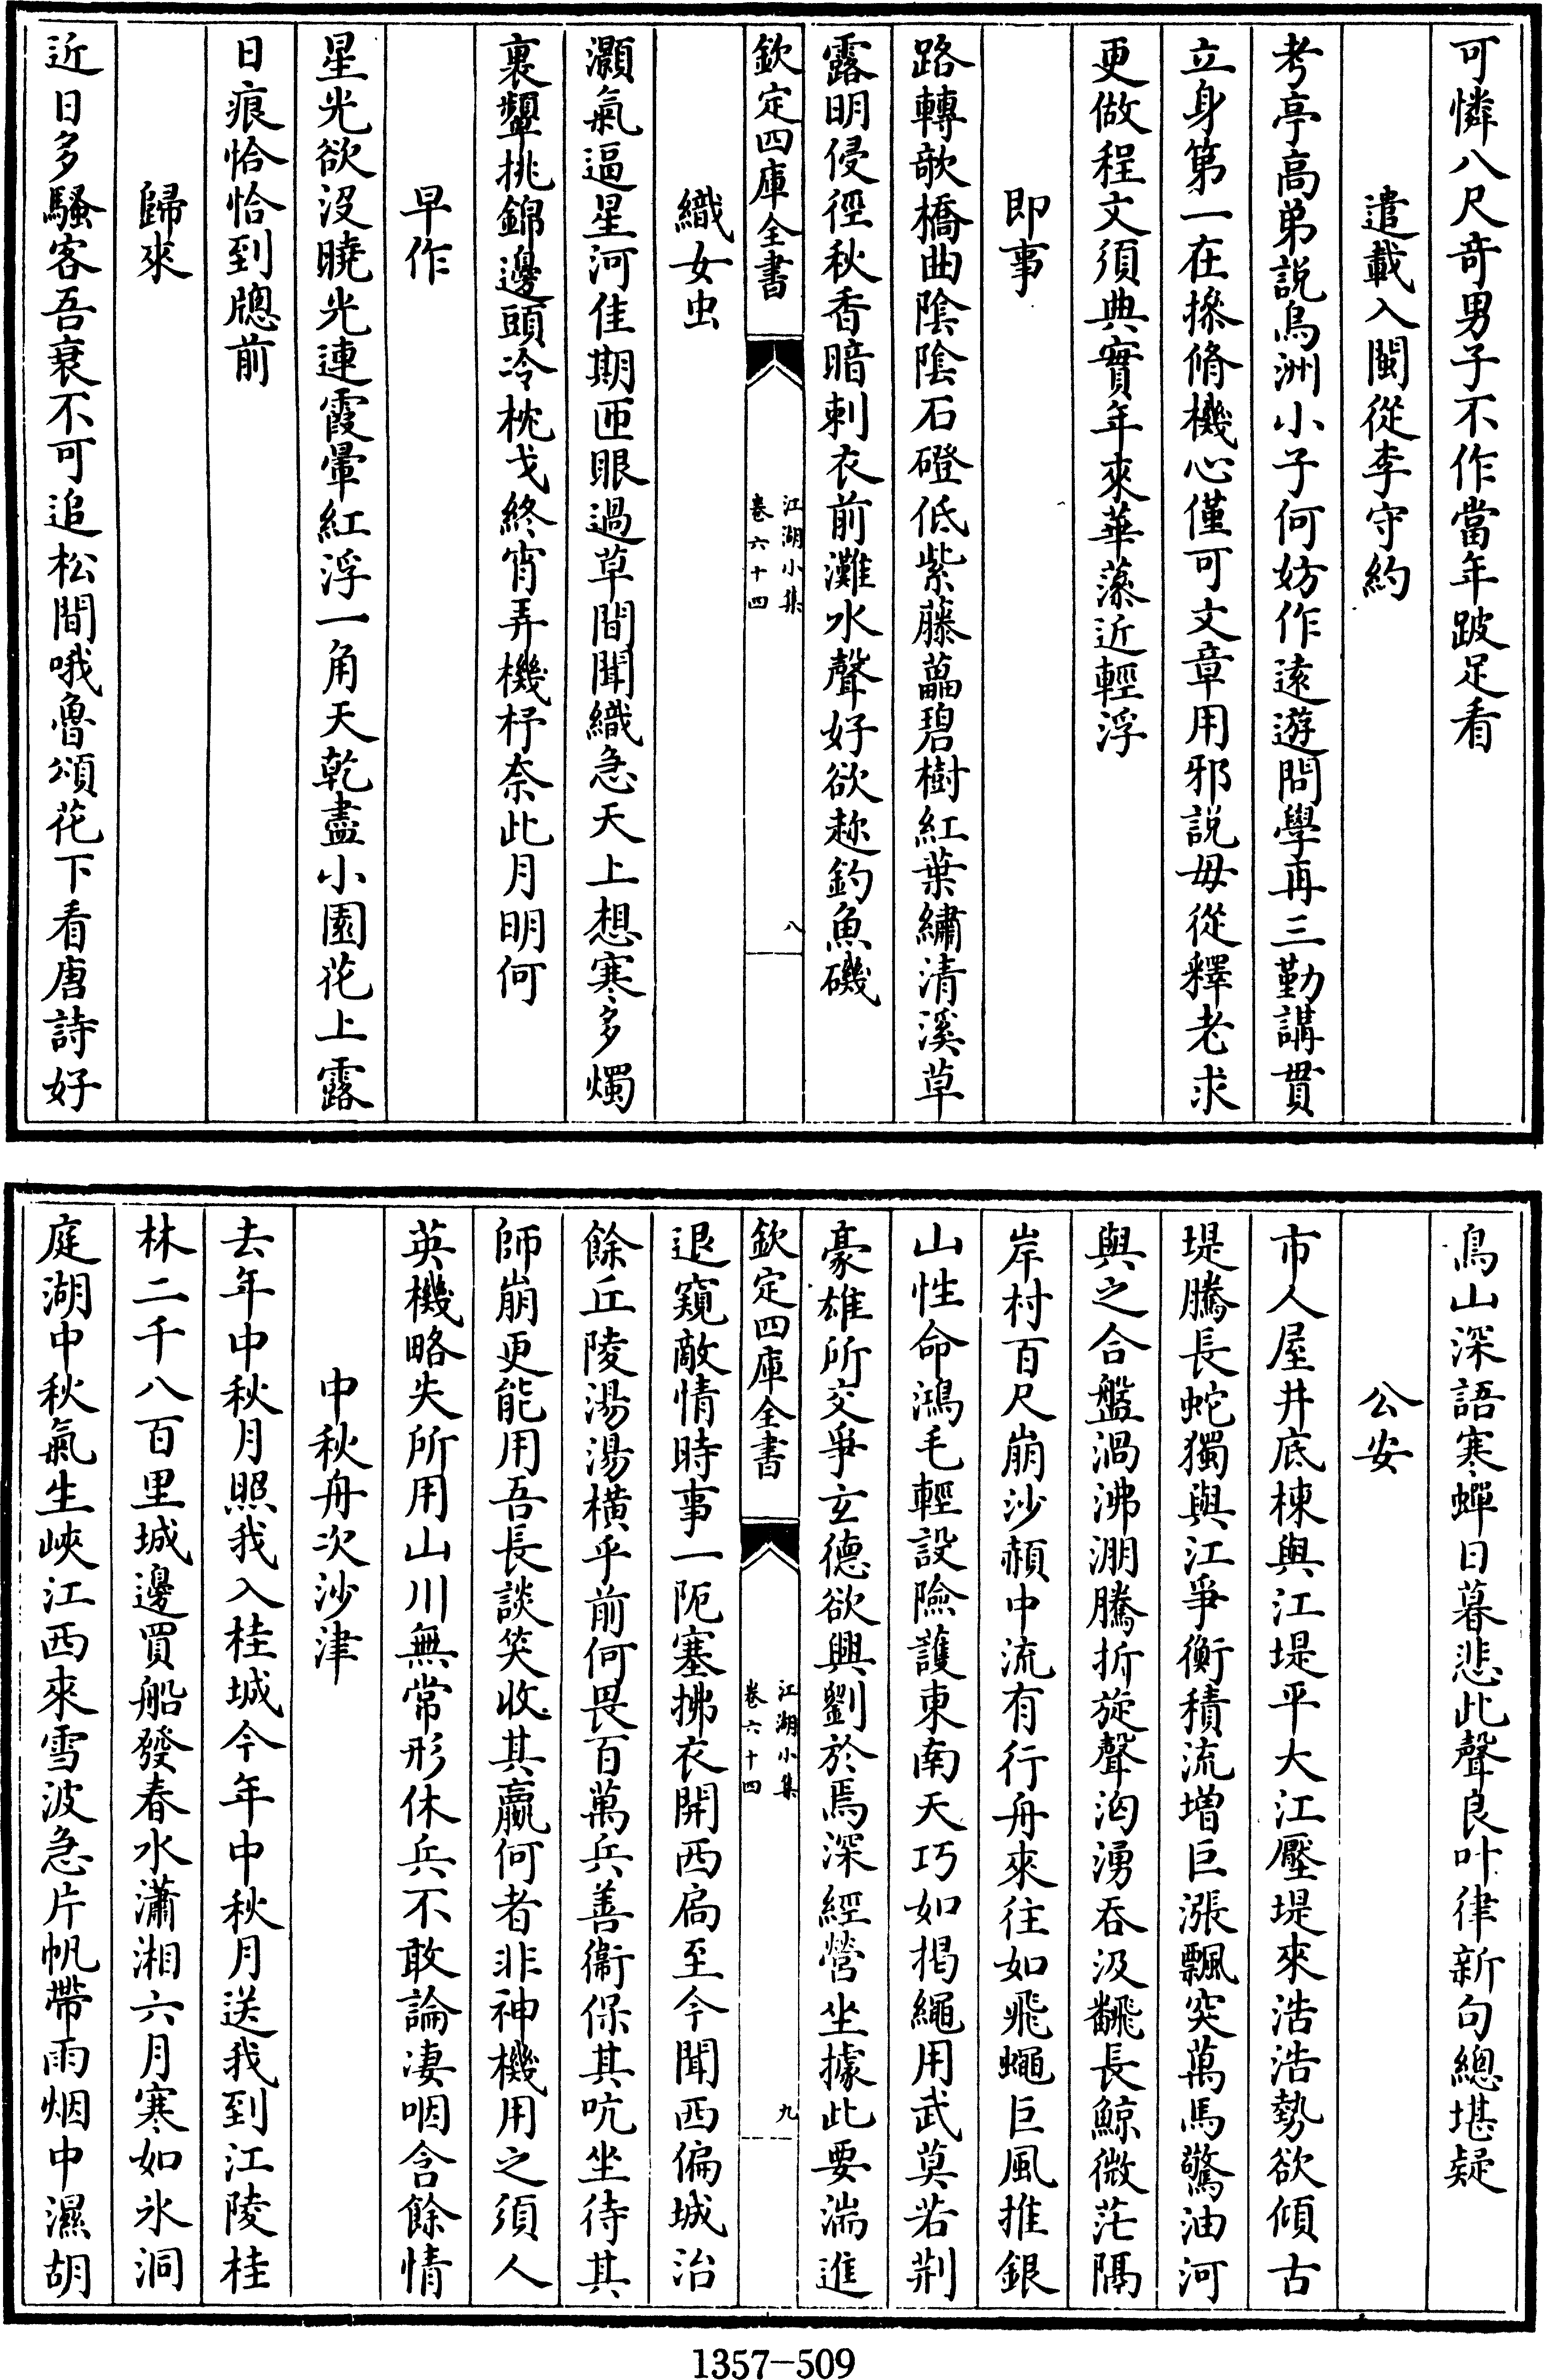 可憐八尺奇男子不作當年跛足看
遣載入閩從李守約
考亭高弟説烏洲小子何妨作逺遊問學再三勤講貫
立身第一在操脩機心僅可文章用邪説毋從釋老求
更做程文須典實年來華藻近輕浮
即事
路轉欹橋曲陰陰石磴低紫藤藟碧樹紅葉繡清溪草
露明侵徑秋香暗刺衣前灘水聲好欲趂釣魚磯
欽定四庫全書
江湖小集
卷六十四
八
織女虫
灝氣逼星河佳期匝眼過草間聞織急天上想寒多燭
裏顰挑錦邊頭冷枕戈終宵弄機杼奈此月明何
早作
星光欲没曉光連霞暈紅浮一角天乾盡小園花上露
日痕恰恰到牎前
歸來
近日多騷客吾衰不可追松間哦魯頌花下看唐詩好
鳥山深語寒蟬日暮悲此聲良叶律新句總堪疑
公安
市人屋井底棟與江堤平大江壓堤來浩浩勢欲傾古
堤騰長蛇獨與江爭衡積流增巨漲飄突萬馬驚油河
與之合盤渦沸淜騰折旋聲洶湧吞汲飜長鯨微茫隔
岸村百尺崩沙赬中流有行舟來往如飛蠅巨風推銀
山性命鴻毛輕設險護東南天巧如掲繩用武莫若荆
豪雄所交爭玄德欲興劉於焉深經營坐據此要湍進
欽定四庫全書
江湖小集
卷六十四
九
退窺敵情時事一阨塞拂衣開西扃至今聞西偏城治
餘丘陵湯湯横乎前何畏百萬兵善衞保其吭坐待其
師崩更能用吾長談笑收其嬴何者非神機用之須人
英機略失所用山川無常形休兵不敢論凄咽含餘情
中秋舟次沙津
去年中秋月照我入桂城今年中秋月送我到江陵桂
林二千八百里城邊買船發春水瀟湘六月寒如氷洞
庭湖中秋氣生峽江西來雪波急片帆帶雨烟中濕胡
1357-509